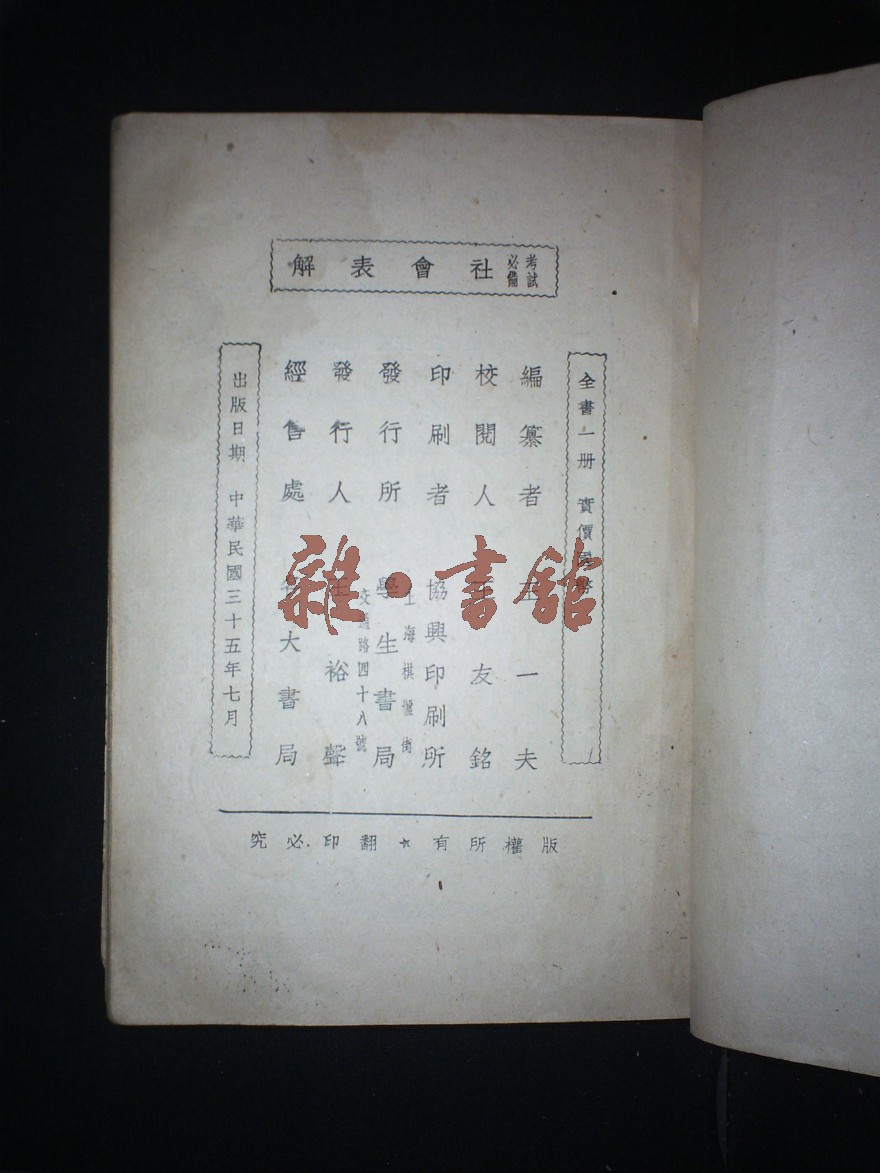 考試必備 社會表解
全書一册 實價國幣
編纂者 王一夫
校閱人 王友銘
印刷者 協興印刷所
發行所 學生書局
上海棋盤街
交通路四十八號
發行人 王裕聲
經售處 各大書局
出版日期 中華民國三十五年七月
版權所有★翻印必究
雜·書館